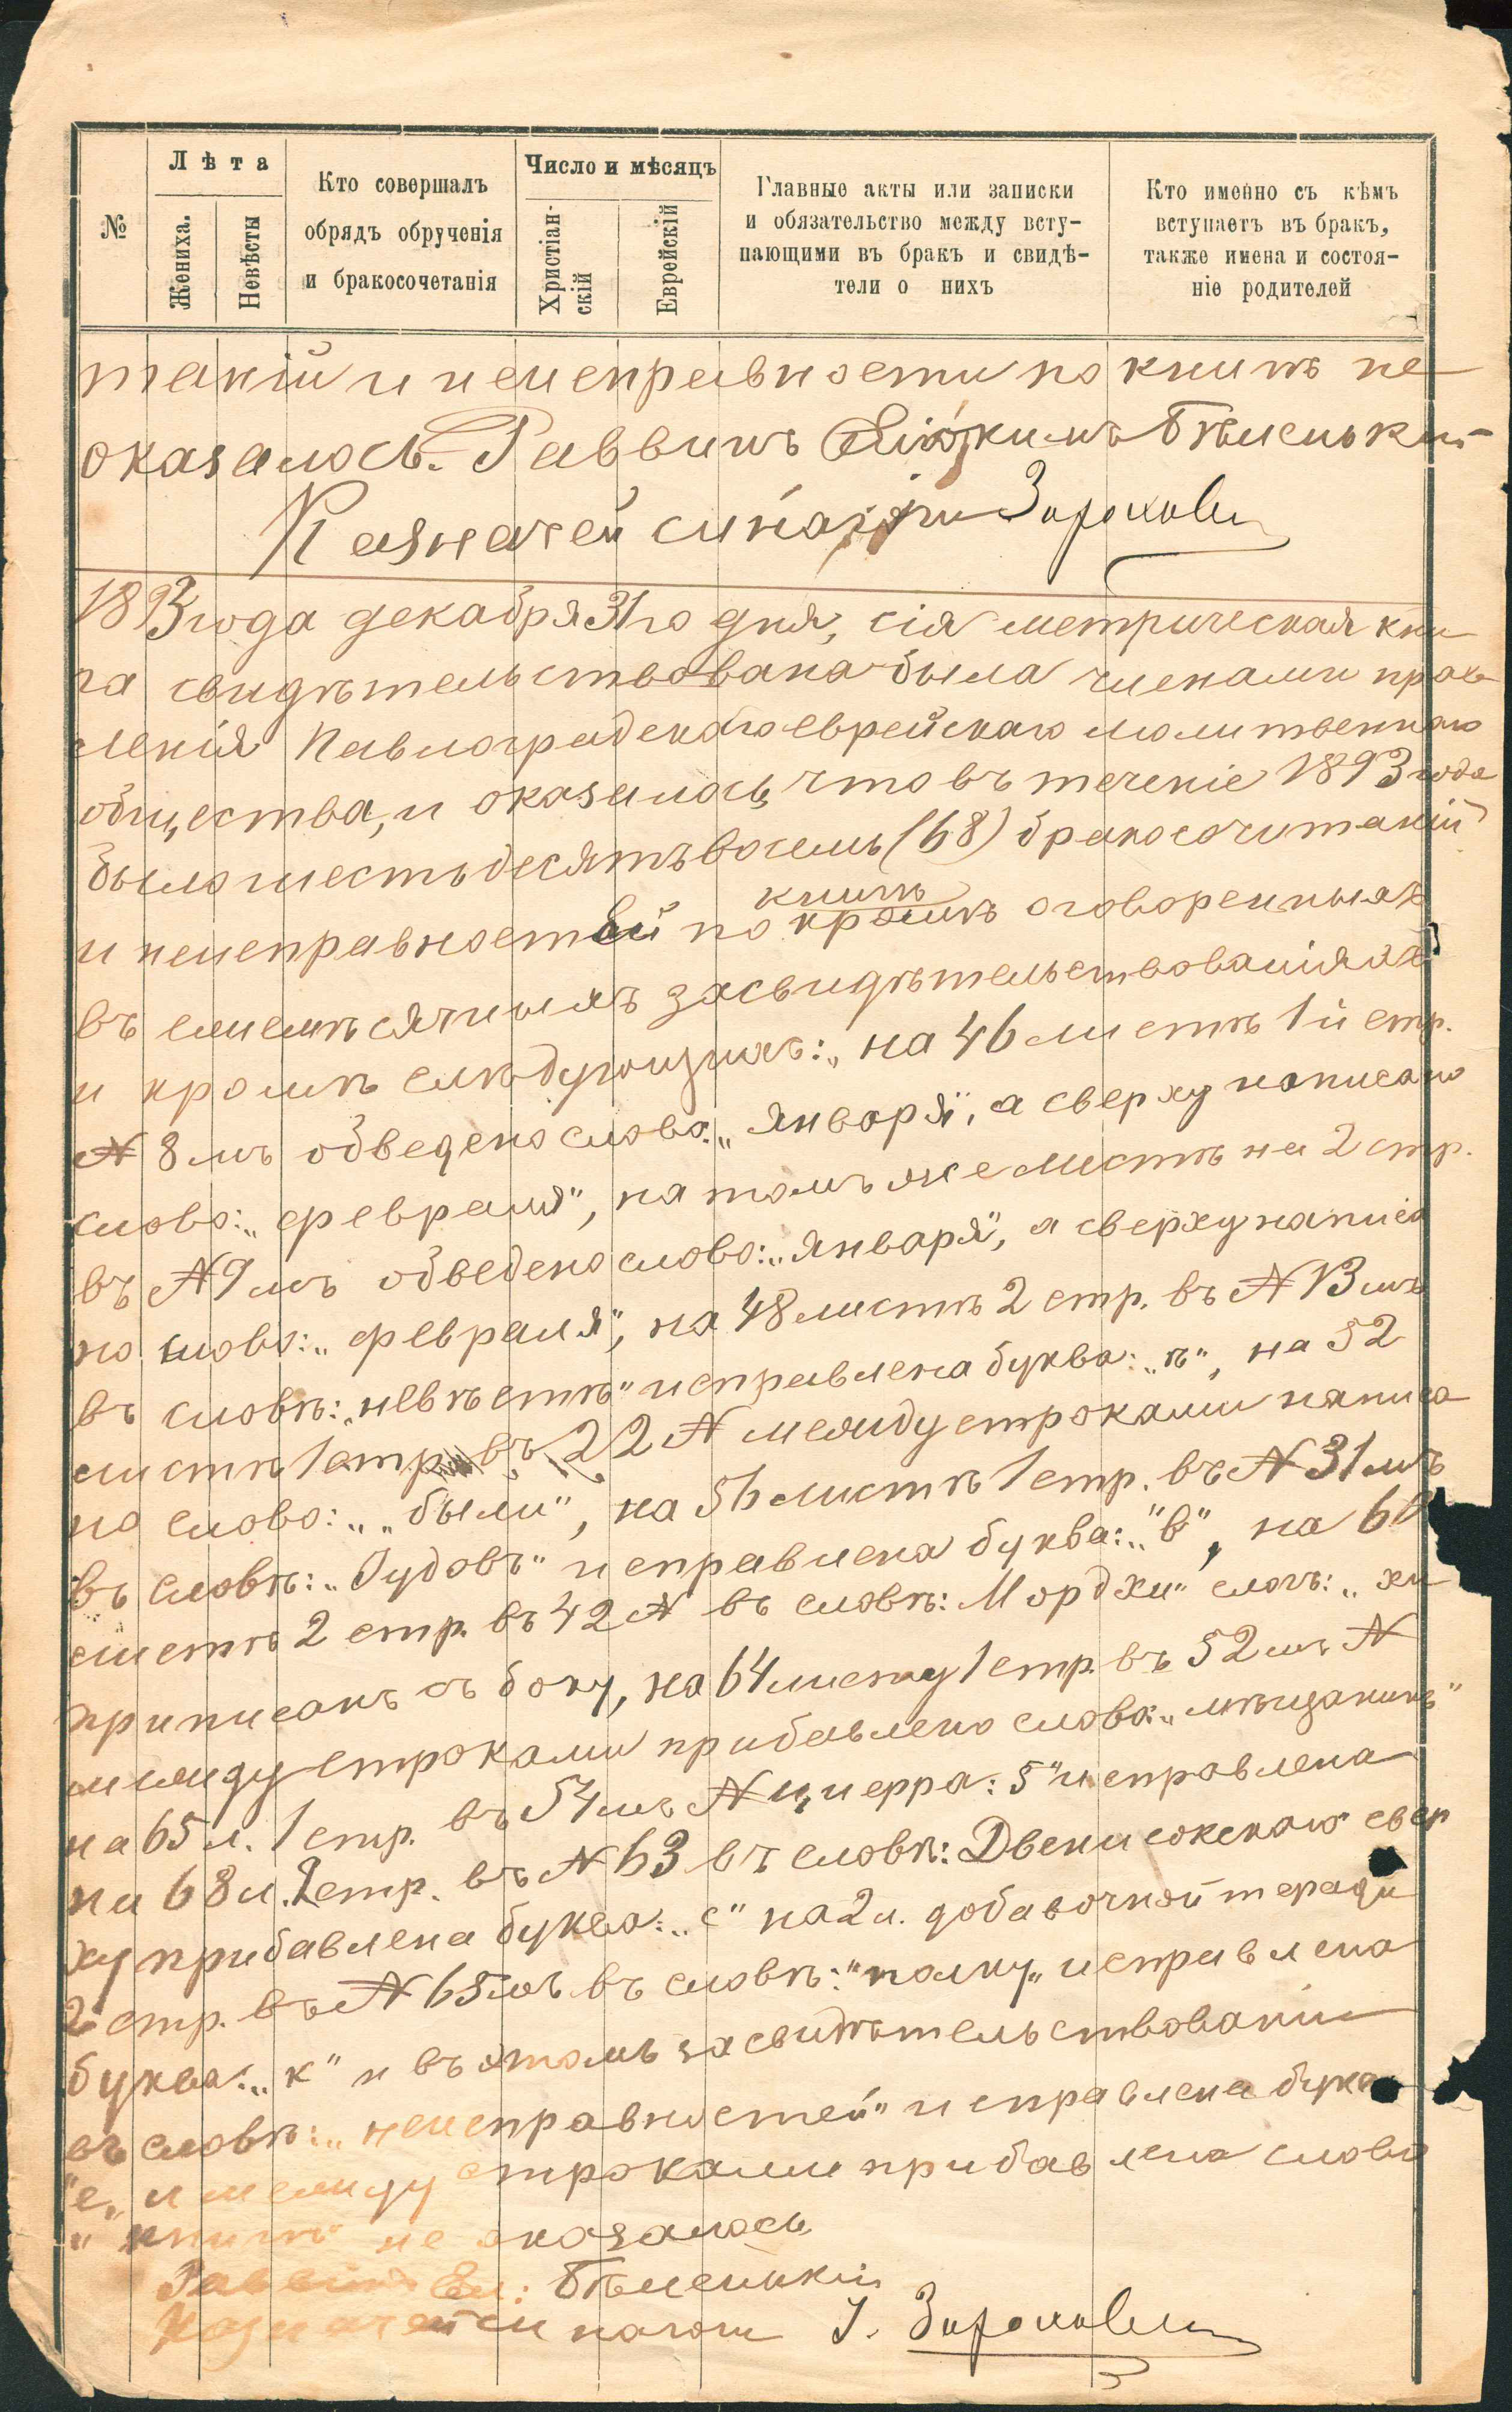 №
Лѣта
Жениха.
Невѣсты
Кто совершалъ
обрядъ обрученія
и бракосочетанія
Число и мѣсяцъ
Христіан-
скій
Еврейскій
Главные акты или записки
и обязательство между всту-
пающими въ бракъ и свидѣ-
тели о нихъ
Кто именно съ кѣмъ
вступаетъ въ бракъ,
также имена и состоя-
ніе родителей
таній и неисправности по книгѣ не
оказалось. Раввинъ
Казначей
1893 года декабря 31го дня, сія метрическая кни
га свидѣтельствована была членами прав
ленія Павлоградскаго еврейскаго молитвеннаго
общества, и оказалось, что въ теченіе 1893 года
было шестьдесятъ восемь (68) бракосочитаній
книгѣ
и неисправностей по кромѣ оговоренныхъ
въ ежемѣсячныхъ засвидѣтельствованіяхъ
и кромѣ слѣдующихъ: „на 46 листѣ 1й стр.
№ 8мъ обведено слово: „января", а сверху написано
слово: „февраля", на томъ же листѣ на 2 стр.
въ № 9мъ обведено слово: „января", а сверху написа
но слово: „февраля", на 48 листѣ 2 стр. въ № 13мъ
въ словѣ: „невѣстѣ" исправлена буква: „ѣ", на 52
листѣ 1 стр. въ 22 № между строками написа
но слово: „были", на 56 листѣ 1 стр. въ № 31мъ
въ словѣ: „Гудовъ" исправлена буква: „в", на 60
листѣ 2 стр. въ 42 № въ словѣ: Мордхи" слогъ: „хи
приписанъ съ боку, на 64 листу 1 стр. въ 52мъ №
между строками прибавлено слово: „мѣщанинъ"
на 65 л. 1 стр. въ 54мъ № циферра: 5" исправлена
на 68 л. 2 стр. въ № 63 въ словѣ: свер
ху прибавлена буква: „с" на 2 л. добавочной тетради
2 стр. въ № 65мъ въ словѣ: "полку„ исправлена
буква: „к" и въ этомъ засвидѣтельствованіи
въ словѣ: „неисправностей" исправлена буква
"е„ и между строками прибавлена слово
„книгѣ не оказалось
Раввинъ
Казначей